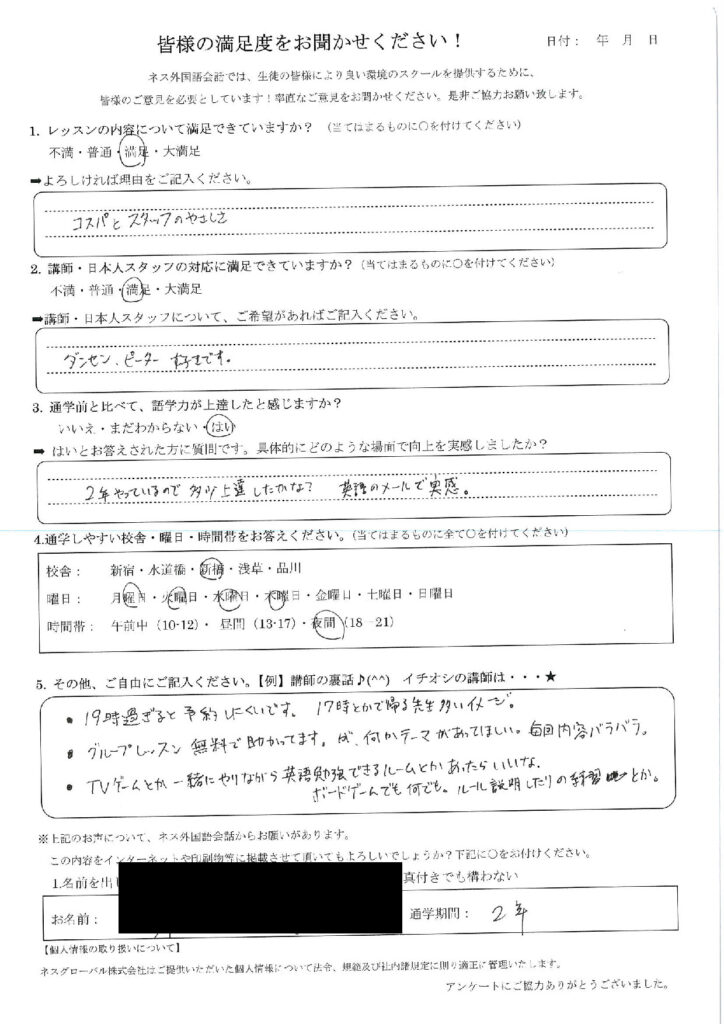 皆様の満足度をお聞かせください！
日付： 年 月 日
ネス外国語会話では、生徒の皆様により良い環境のスクールを提供するために、
皆様のご意見を必要としています！率直なご意見をお聞かせください。是非ご協力お願い致します。
1. レッスンの内容について満足できていますか？ （当てはまるものに〇を付けてください）
不満・普通・満足・大満足
➡よろしければ理由をご記入ください。
コスパとスタッフのやさしさ
2. 講師・日本人スタッフの対応に満足できていますか？（当てはまるものに〇を付けてください）
不満・普通・満足・大満足
➡講師・日本人スタッフについて、ご希望があればご記入ください。
ダンセン、ピーター 好きです。
3. 通学前と比べて、語学力が上達したと感じますか？
いいえ・まだわからない・はい
➡ はいとお答えされた方に質問です。具体的にどのような場面で向上を実感しましたか？
2年やっているので多少上達したかな？ 英語のメールで実感。
4.通学しやすい校舎・曜日・時間帯をお答えください。（当てはまるものに全て〇を付けてください）
校舎： 新宿・水道橋・新橋・浅草・品川
曜日： 月曜日・火曜日・水曜日・木曜日・金曜日・土曜日・日曜日
時間帯： 午前中（10-12）・ 昼間（13-17）・夜間（18－21）
5. その他、ご自由にご記入ください。【例】講師の裏話♪(^^) イチオシの講師は・・・★
• 19時過ぎると予約しにくいです。 17時とかで帰る先生多いイメージ。
• グループレッスン無料で助かってます。が、何かテーマがあってほしい。毎回内容バラバラ。
• TVゲームとか一緒にやりながら英語勉強できるルームとかあったらいいな。
ボードゲームでも何でも。ルール説明したりの練習とか。
※上記のお声について、ネス外国語会話からお願いがあります。
この内容をインターネットや印刷物等に掲載させて頂いてもよろしいでしょうか？下記に〇をお付けください。
1.名前を出し
真付きでも構わない
お名前：
通学期間： 2年
【個人情報の取り扱いについて】
ネスグローバル株式会社はご提供いただいた個人情報について法令、規範及び社内諸規定に則り適正に管理いたします。
アンケートにご協力ありがとうございました。